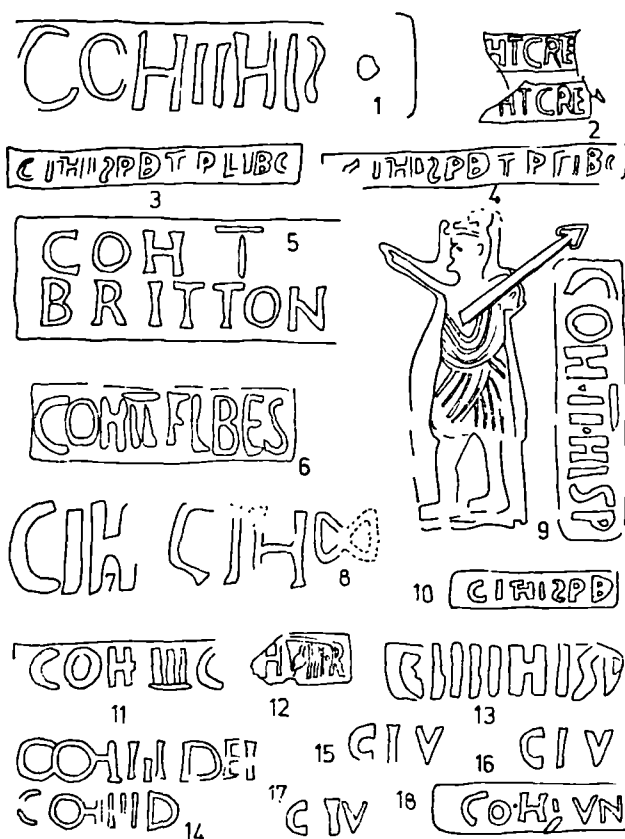 CCHIIHIS
1
HTCRE
HTCRE
2
CIHISPD T P LIBC
3
IHISPD T P LIB
4
COH I
BRITTON
5
COHII FLBES
6
COH·II·HISP
9
CIH
7
CIH
8
CIHISPD
10
COH IIII C
11
12
CIIIIIHISP
13
COHIIII D
COHIIII D
14
CIV
15
CIV
16
CIV
17
CO·H VN
18